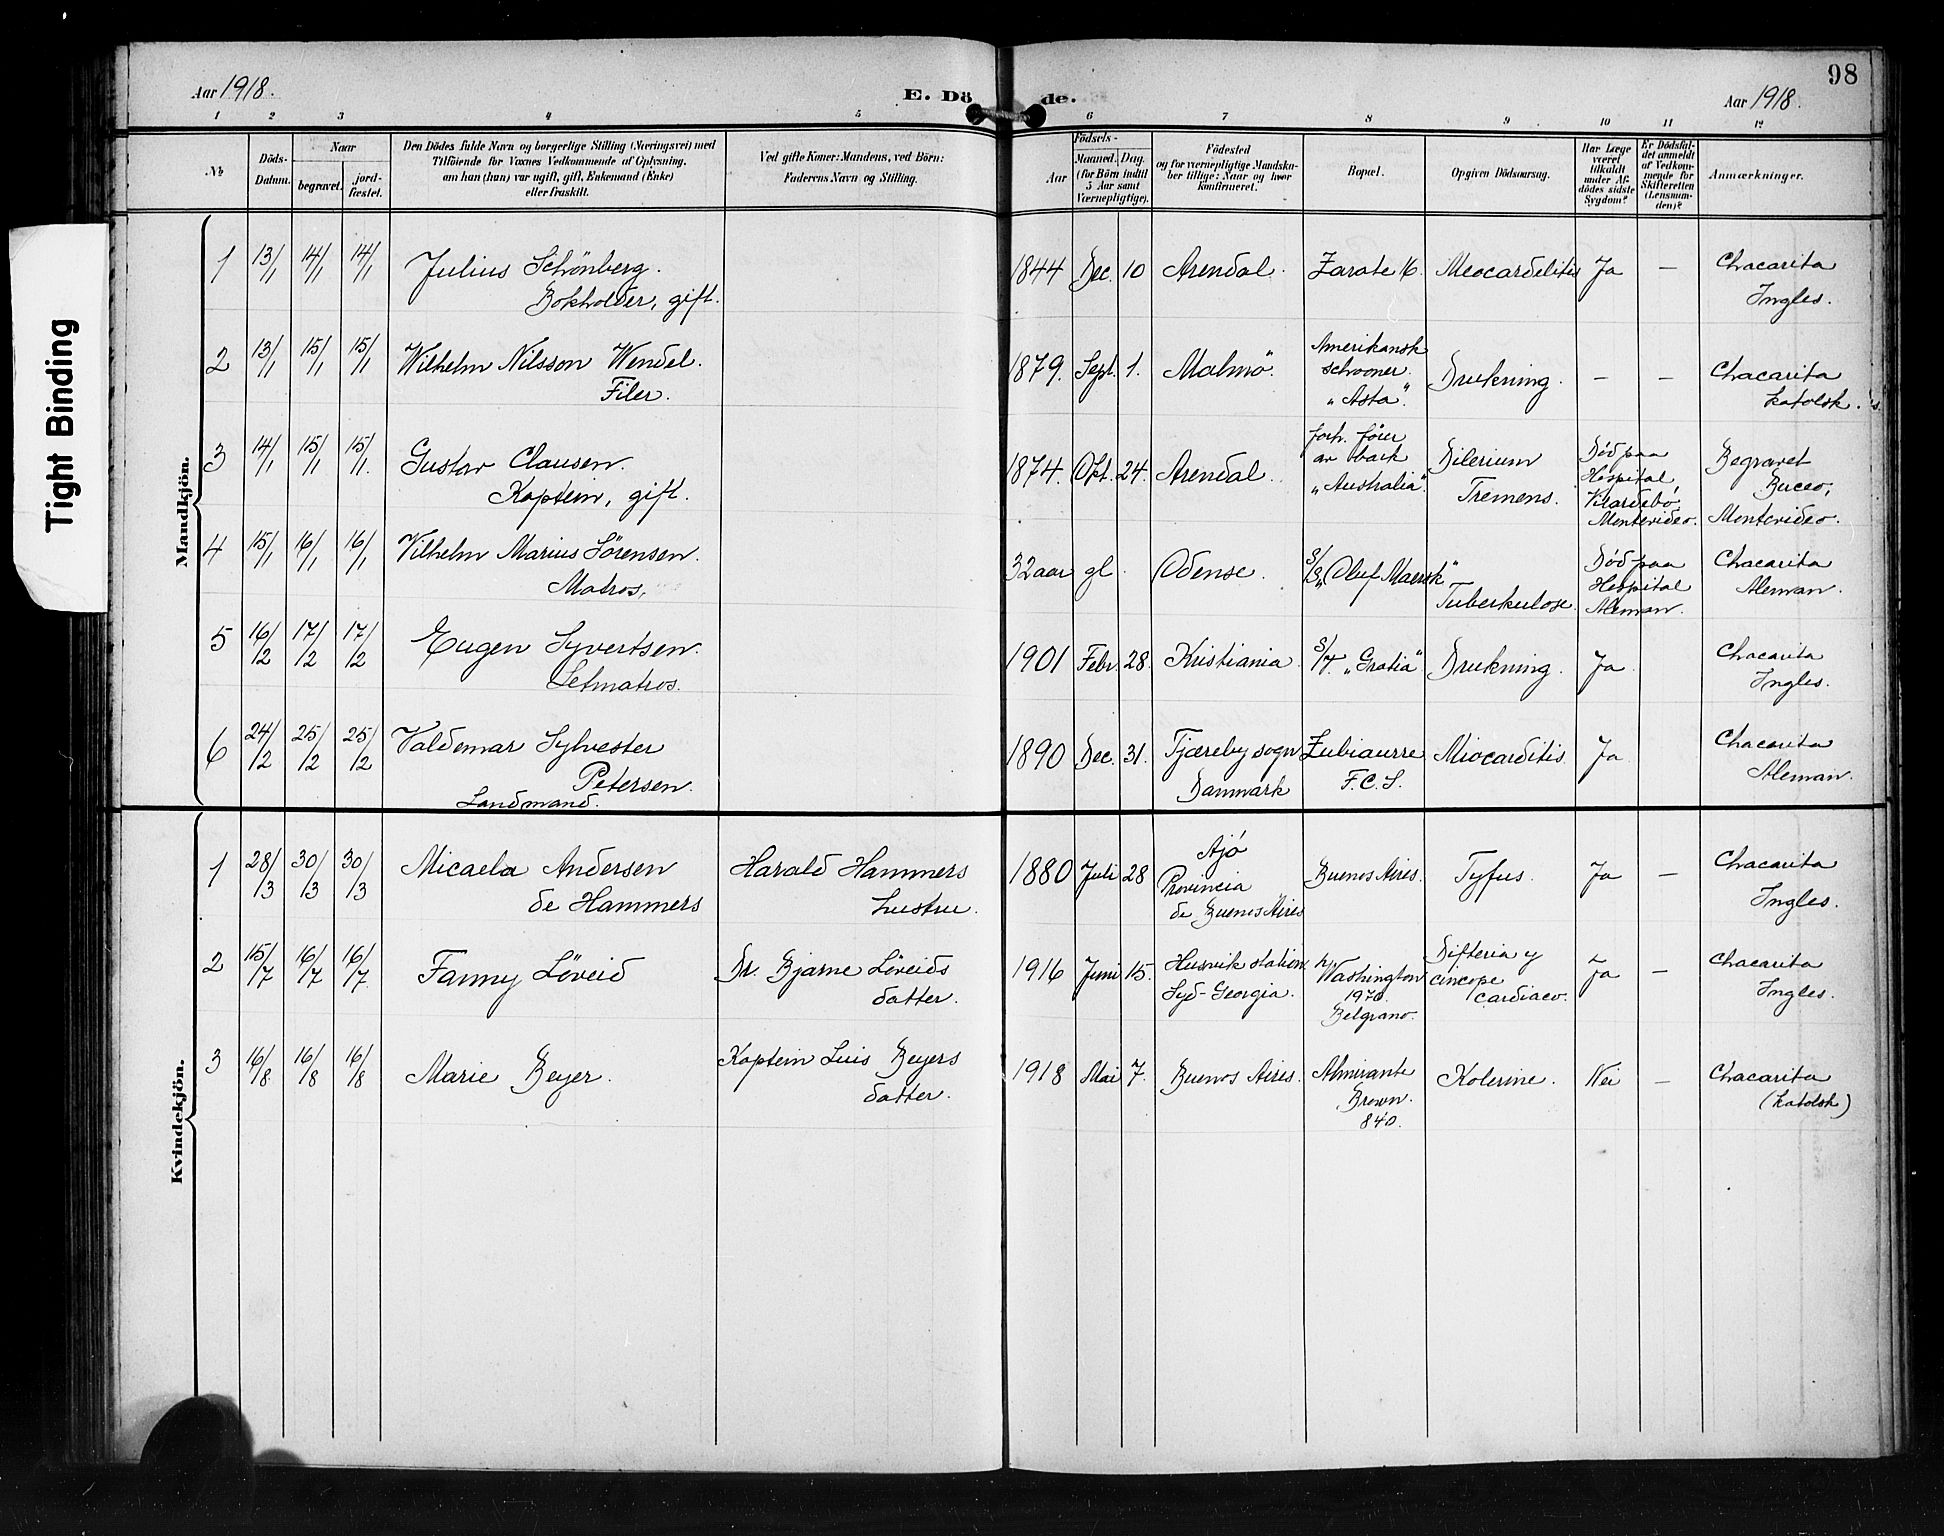 98
Aar 1918.
E. Dö
de.
Aar 1918.
1 2 3 4 5 6 7 8 9 10 11 12
Tight Binding
No
Döds-
Datum.
Naar
begravet.
jord-
fæstet.
Den Dödes fulde Navn og borgerlige Stilling (Næringsvei) med
Tilföiende for Voxnes Vedkommende af Oplysning,
om han (hun) var ugift, gift, Enkemand (Enke)
eller fraskilt.
Ved gifte Koner: Mandens, ved Börn:
Faderens Navn og Stilling.
Födsels-
Aar
Maaned. Dag.
(for Börn indtil
5 Aar samt
Værnepligtige).
Födested
og for værnepligtige Mandskaber
tillige: Naar og hvor
konfirmeret.
Bopæl.
Opgiven Dödsaarsag.
Har Læge
været
tilkaldt
under Af-
dödes sidste
Sygdom?
Er Dödsfal-
det anmeldt
af Vedkom-
mende for
Skifteretten
(Lensman-
den)?
Anmærkninger.
Mandkjön.
1 13/1 14/1 14/1 Julius Schönberg.
Bokholder, gift.
1844 Dec. 10 Arendal. Zarate 16. Meocardelitis Ja — Chacarita
Ingles.
2 13/1 15/1 15/1 Wilhelm Nilsson Wendel.
Filer.
1879. Sept. 1. Malmö. Amerikansk
schooner.
„Asta".
Drukning. — — Chacarita
katolsk.
3 14/1 15/1 15/1. Gustav Clausen.
Kaptein, gift.
1874. Okt. 24. Arendal. forh. förer
av bark
„Australia".
Dilerium
Tremens.
Död paa
Hospital,
Vilardebó,
Montevideo.
Begravet
Buceo,
Montevideo.
4 15/1 16/1 16/1 Vilhelm Marius Sörensen.
Matros.
32 aar gl. Odense. S/S „Oluf Maersk"
Tuberkulose.
Död paa
Hospital
Aleman.
Chacarita
Aleman.
5 16/2 17/2 17/2 Eugen Syvertsen.
Letmatros.
1901 Febr. 28. Kristiania. S/T. „Gratia" Drukning. Ja. Chacarita
Ingles.
6 24/2 25/2 25/2 Valdemar Sylvester
Petersen.
Landmand.
1890 Dec. 31. Tjæreby sogn
Danmark
Zubiaurre
F.C.S.
Miocarditis. Ja. Chacarita
Aleman.
Kvindekjön.
1 28/3 30/3 30/3 Micaela Andersen
de Hammers
Harald Hammers
hustru.
1880 Juli 28 Ajó
Provincia
de Buenos Aires
Buenos Aires. Tyfus. Ja — Chacarita
Ingles.
2 15/7 16/7 16/7. Fanny Löveid Dr. Bjarne Löveids
datter.
1916 Juni 15. Husvik station
Syd-Georgia.
Washington
1970.
Belgrano.
Difteria y
cincope
cardiaco.
Ja — Chacarita
Ingles.
3 16/8. 16/8 16/8 Marie Beyer. Kaptein Luis Beyers
datter.
1918 Mai 7. Buenos Aires. Almirante
Brown.
840.
Kolerine. Nei — Chacarita
(katolsk)